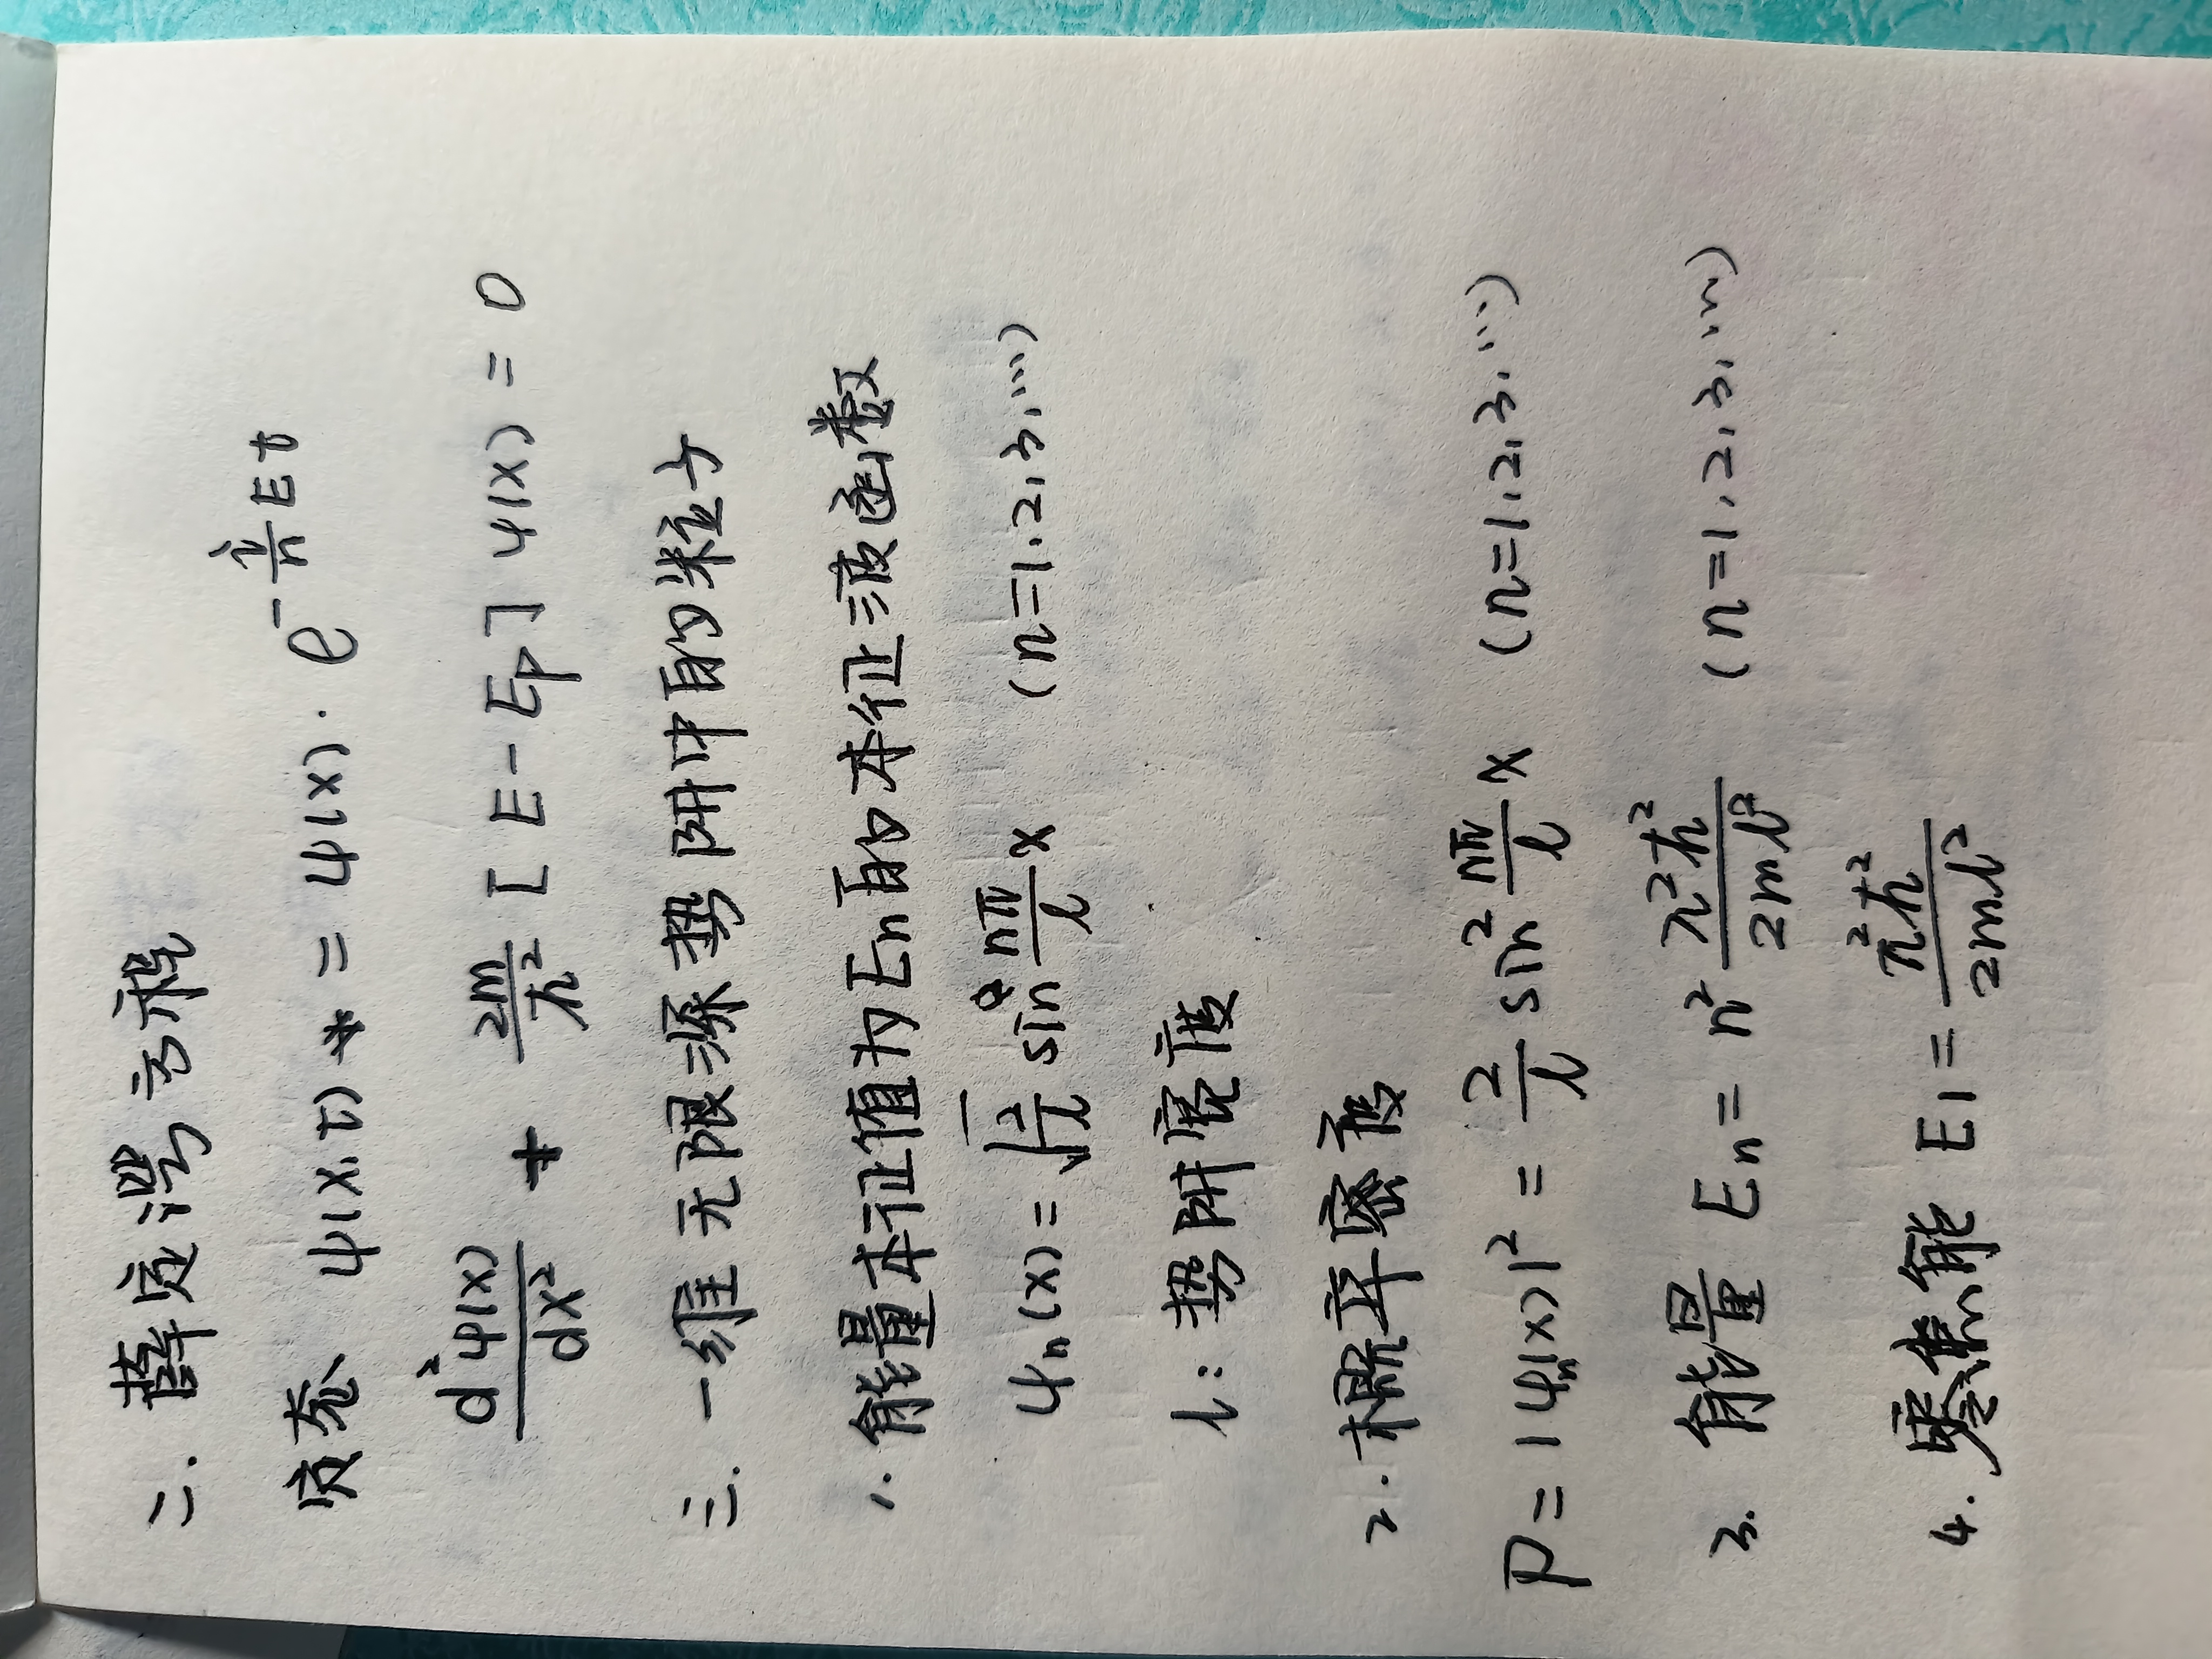 二. 薛定谔方程
定态 ψ(x,t) = ψ(x)·e^{-\frac{i}{n}Et}
\frac{d²ψ(x)}{dx²} + \frac{2m}{ħ²} [E-E_p] ψ(x) = 0
三. 一维无限深势阱中的粒子
1. 能量本征值为En的本征波函数
ψ_n(x) = \sqrt{\frac{2}{l}} sin \frac{nπ}{l} x (n=1,2,3,…)
l: 势阱宽度
2. 概率密度
P = |ψ_n(x)|² = \frac{2}{l} sin² \frac{nπ}{l} x (n=1,2,3,…)
3. 能量 E_n = n² \frac{π²ħ²}{2ml²} (n=1,2,3,…)
4. 零点能 E_1 = \frac{π²ħ²}{2ml²}